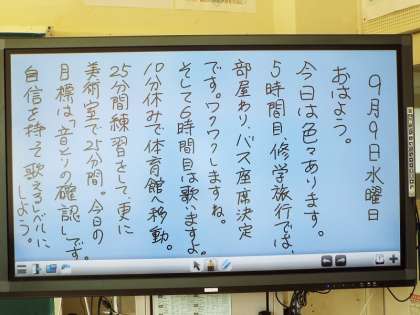 9月9日水曜日
おはよう。
今日は色々あります。
5時間目、修学旅行では、
部屋わり、バス座席決定
です。ワクワクしますね。
そして6時間目は歌いますよ。
10分休みで体育館へ移動。
25分間練習をして、更に
美術室で25分間。今日の
目標は、「音とりの確認」です。
自信を持って歌えるレベルに
しよう。